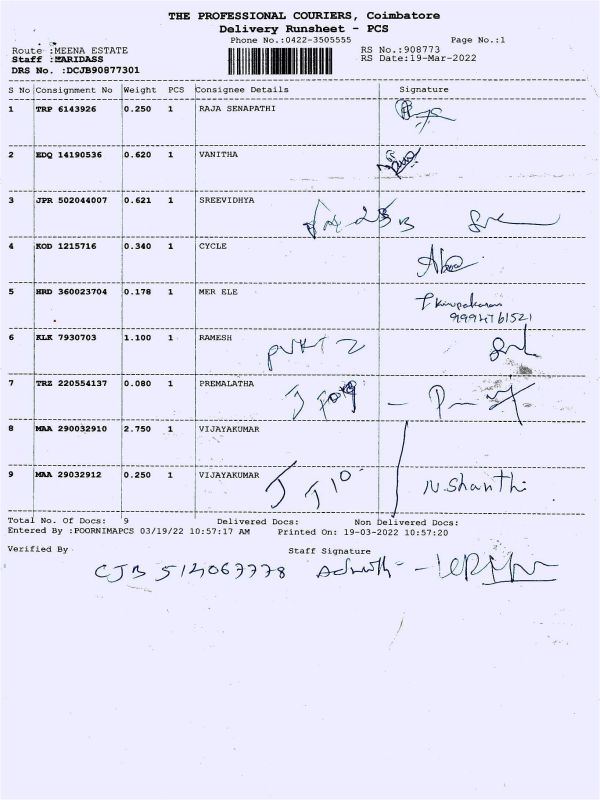 THE PROFESSIONAL COURIERS, Coimbatore
Delivery Runsheet - PCS
Phone No.:0422-3505555 Page No.:1
Route :MEENA ESTATE RS No.:908773
Staff :MARIDASS RS Date:19-Mar-2022
DRS No. :DCJB90877301
S No Consignment No Weight PCS Consignee Details Signature
1 TRP 6143926 0.250 1 RAJA SENAPATHI
2 EDQ 14190536 0.620 1 VANITHA
3 JPR 502044007 0.621 1 SREEVIDHYA
4 KOD 1215716 0.340 1 CYCLE
5 HRD 360023704 0.178 1 MER ELE
6 KLK 7930703 1.100 1 RAMESH
7 TRZ 220554137 0.080 1 PREMALATHA
8 MAA 290032910 2.750 1 VIJAYAKUMAR
9 MAA 29032912 0.250 1 VIJAYAKUMAR N. Shanthi
Total No. Of Docs: 9 Delivered Docs: Non Delivered Docs:
Entered By :POORNIMAPCS 03/19/22 10:57:17 AM Printed On: 19-03-2022 10:57:20
Verified By Staff Signature
CJB 514067778